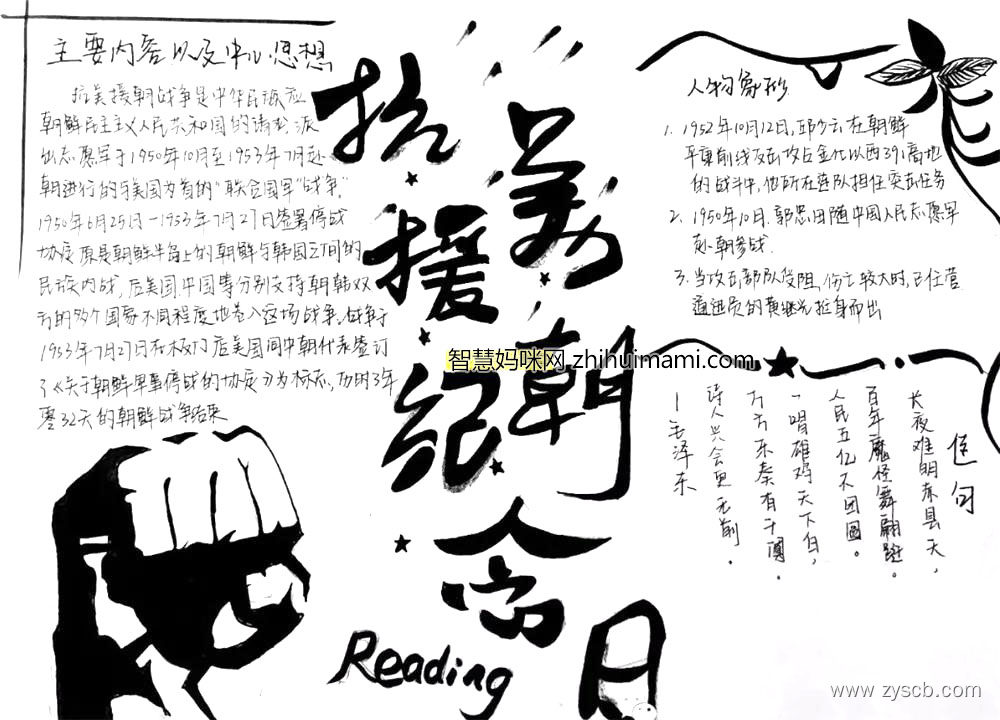 主要内容以及中心思想
抗美援朝战争是中华民族应
朝鲜民主主义人民共和国的请求,派
出志愿军于1950年10月至1953年7月赴
朝进行的与美国为首的"联合国军"战争。
1950年6月25日一1953年7月27日签署停战
协定原是朝鲜半岛上的朝鲜与韩国之间的
民族内战,后美国,中国等分别支持朝韩双
方的多个国家不同程度地卷入这场战争。战争于
1953年7月27日在板门店美国间中朝代表签订
了《关于朝鲜军事停战的协定》为标志,历时3年
零32天的朝鲜战争结束
抗美
援朝
纪念日
Reading
智慧妈咪网 zhihuimami.com
人物象形
1. 1952年10月12日,邱少云在朝鲜
平康前线反击攻占金化以西391高地
的战斗中,他所在连队担任突击任务
2. 1950年10月.郭忠田随中国人民志愿军
赴朝参战.
3. 当攻击部队受阻,伤亡较大时,已任营
通迅员的黄继光挺身而出
佳句
长夜难明赤县天,
百年魔怪舞翩跹。
人民五亿不团圆。
一唱雄鸡天下白,
万方乐奏有于阗。
诗人兴会更无前。
一毛泽东
www.zyscb.com